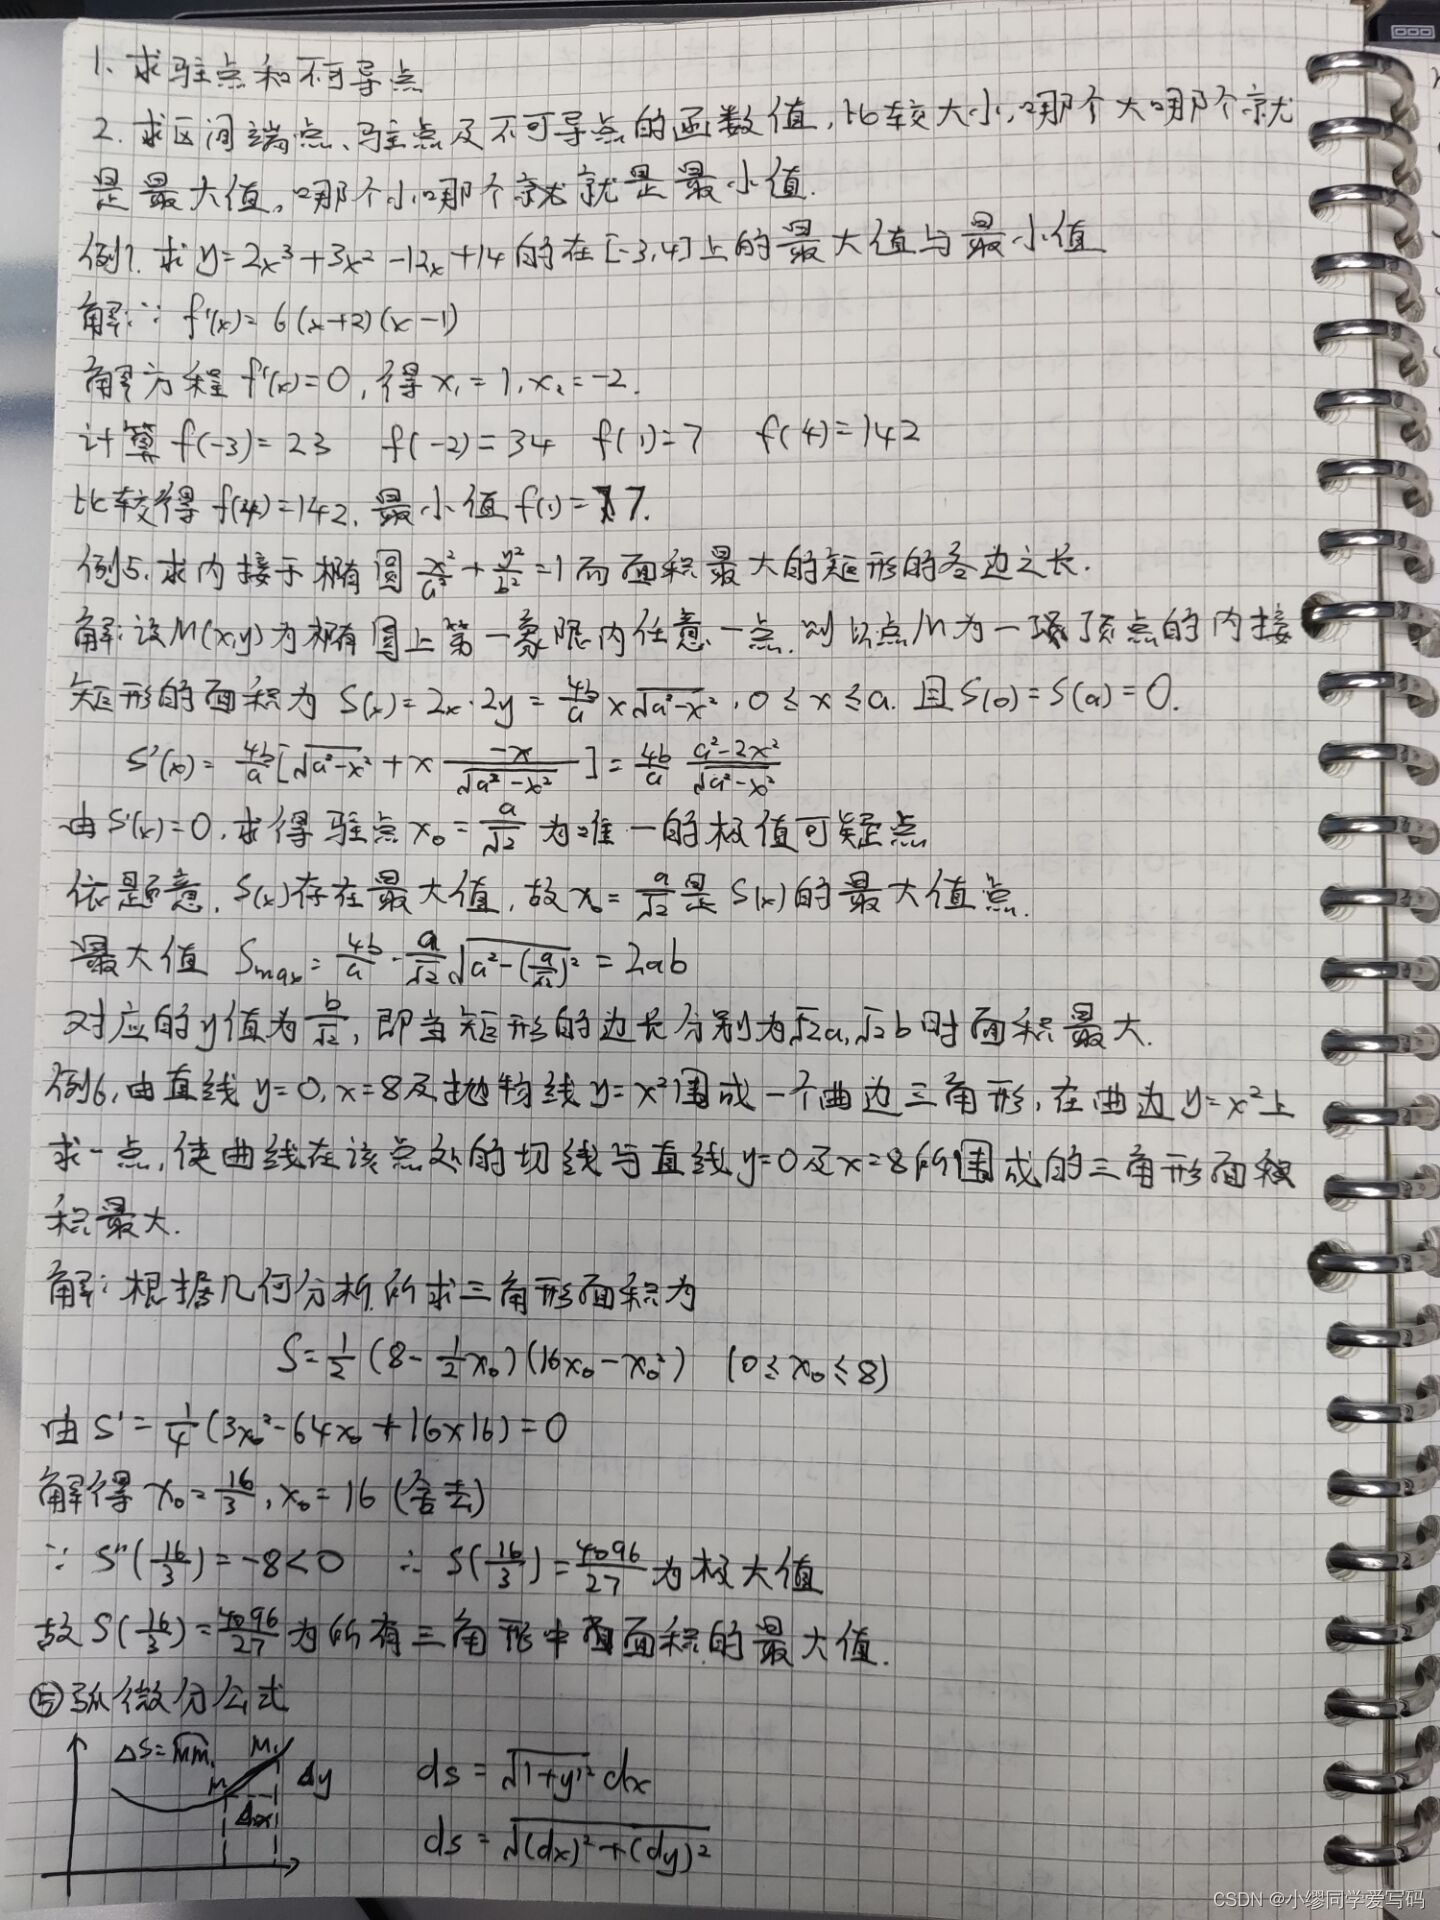 1、求驻点和不可导点
2、求区间端点、驻点及不可导点的函数值，比较大小，哪个大哪个就
是最大值，哪个小哪个就就是最小值.
例7. 求y=2x³+3x²-12x+14的在[-3,4]上的最大值与最小值
解:∵ f'(x)=6(x+2)(x-1)
解方程 f'(x)=0,得x₁=1,x₂=-2.
计算f(-3)=23 f(-2)=34 f(1)=7 f(4)=142
比较得 f(4)=142,最小值f(1)=7.
例5.求内接于椭圆x²/a²+y²/b²=1而面积最大的矩形的各边之长.
解:设M(x,y)为椭圆上第一象限内任意一点,则以点M为一顶点的内接
矩形的面积为 S(x)=2x·2y=4b/a x√(a²-x²),0≤x≤a.且S(0)=S(a)=0.
S'(x)=4b/a[√(a²-x²)+x -x/√(a²-x²)]=4b/a (a²-2x²)/√(a²-x²)
由S'(x)=0,求得驻点x₀=a/√2为唯一的极值可疑点
依题意,S(x)存在最大值,故x₀=a/√2是S(x)的最大值点.
最大值 Smax=4b/a·a/√2√(a²-(a/√2)²)=2ab
对应的y值为b/√2,即当矩形的边长分别为√2a,√2b时面积最大.
例6,由直线y=0,x=8及抛物线y=x²围成一个曲边三角形,在曲边y=x²上
求一点,使曲线在该点处的切线与直线y=0及x=8所围成的三角形面积
积最大.
解:根据几何分析,所求三角形面积为
S=1/2(8-1/2x₀)(16x₀-x₀²) (0≤x₀≤8)
由S'=1/4(3x₀²-64x₀+16×16)=0
解得x₀=16/3,x₀=16(舍去)
∵ S''(16/3)=-8<0 ∴ S(16/3)=4096/27为极大值
故S(16/3)=4096/27为所有三角形中面积的最大值.
⑤弧微分公式
ΔS=MM₁ M₁
M Δy
Δx
ds=√(1+y'²)dx
ds=√((dx)²+(dy)²)
CSDN @小缪同学爱写码